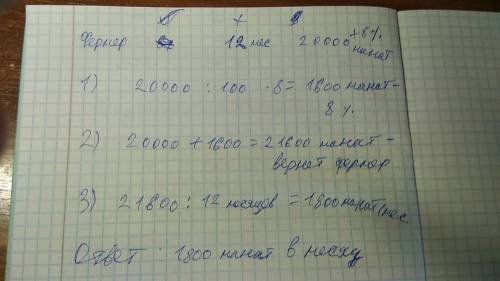 v t S
Фермер 12 мес 20000 +8%
манат
1) 20000 : 100 · 8 = 1600 манат -
8 %.
2) 20000 + 1600 = 21600 манат -
вернет фермер
3) 21600 : 12 месяцов = 1800 манат/мес.
Ответ : 1800 манат в месяц